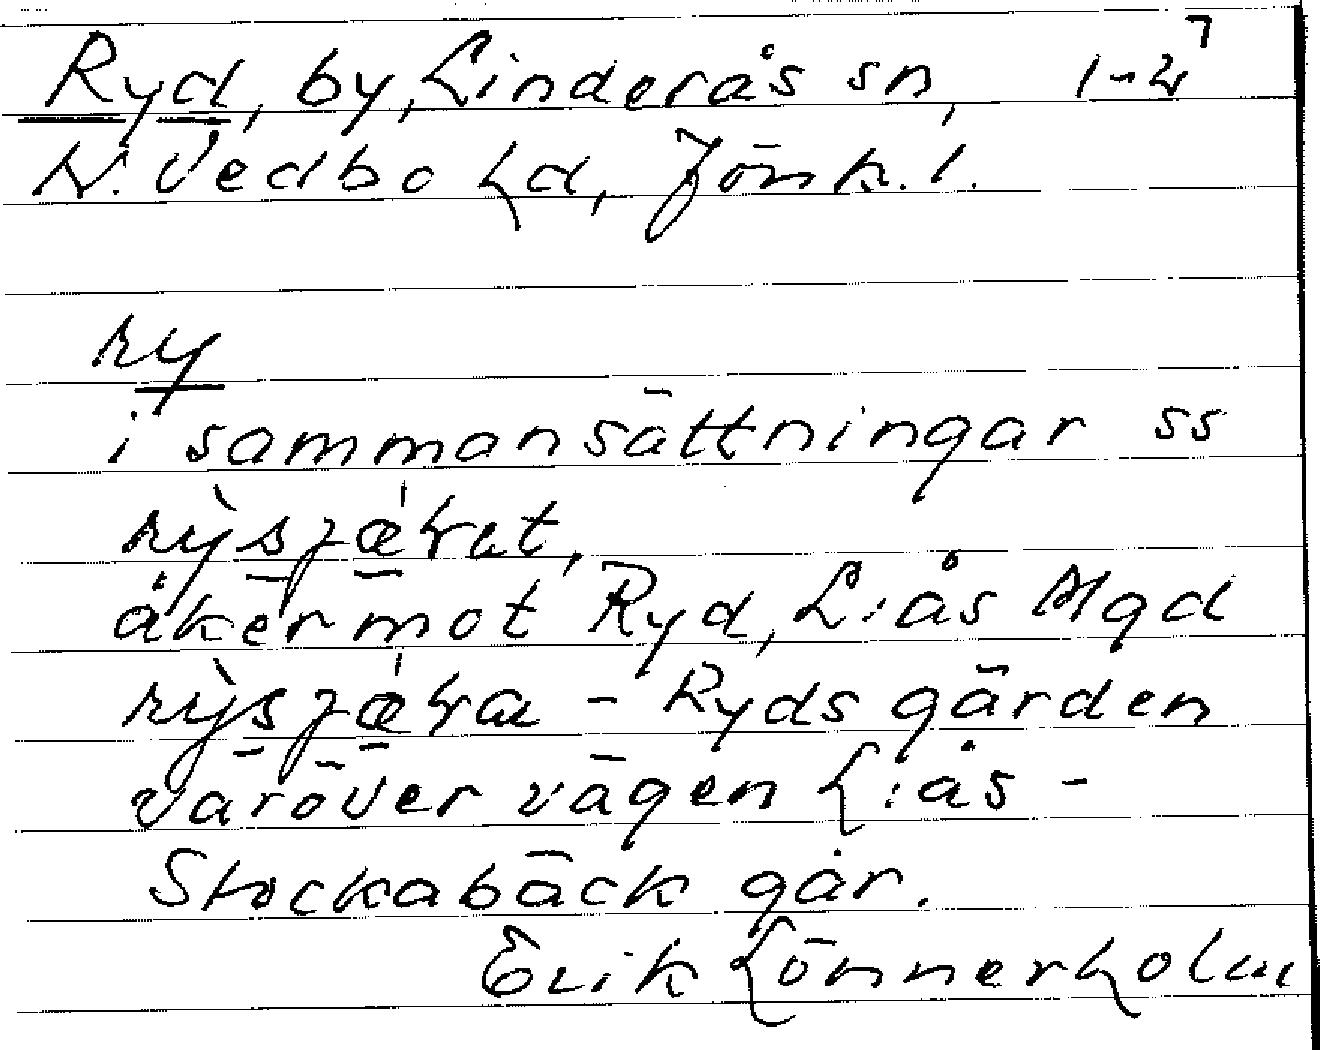 Ryd, by, Linderås sn, 1-2⁷
N. Vedbo hd, Jönk. l.
ry
i sammansättningar ss
rỳsjæ̍kræt,
åker mot Ryd, L:ås Mgd
rỳsjæ̍kra - Ryds gärden
varöver vägen L:ås -
Stockabäck går.
Erik Lönnerholm